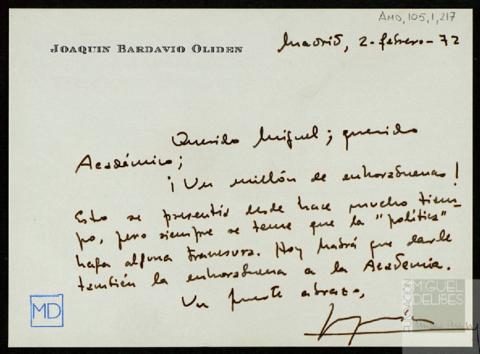 AMD, 105, 1, 217
JOAQUIN BARDAVIO OLIDEN
Madrid, 2-febrero-72
Querido Miguel; querido
Académico;
¡Un millón de enhorabuenas!
Esto se presentía desde hace mucho tiem-
po, pero siempre se teme que la "política"
haga alguna travesura. Hoy habrá que darle
también la enhorabuena a la Academia.
Un fuerte abrazo,
MD
MIGUEL
DELIBES